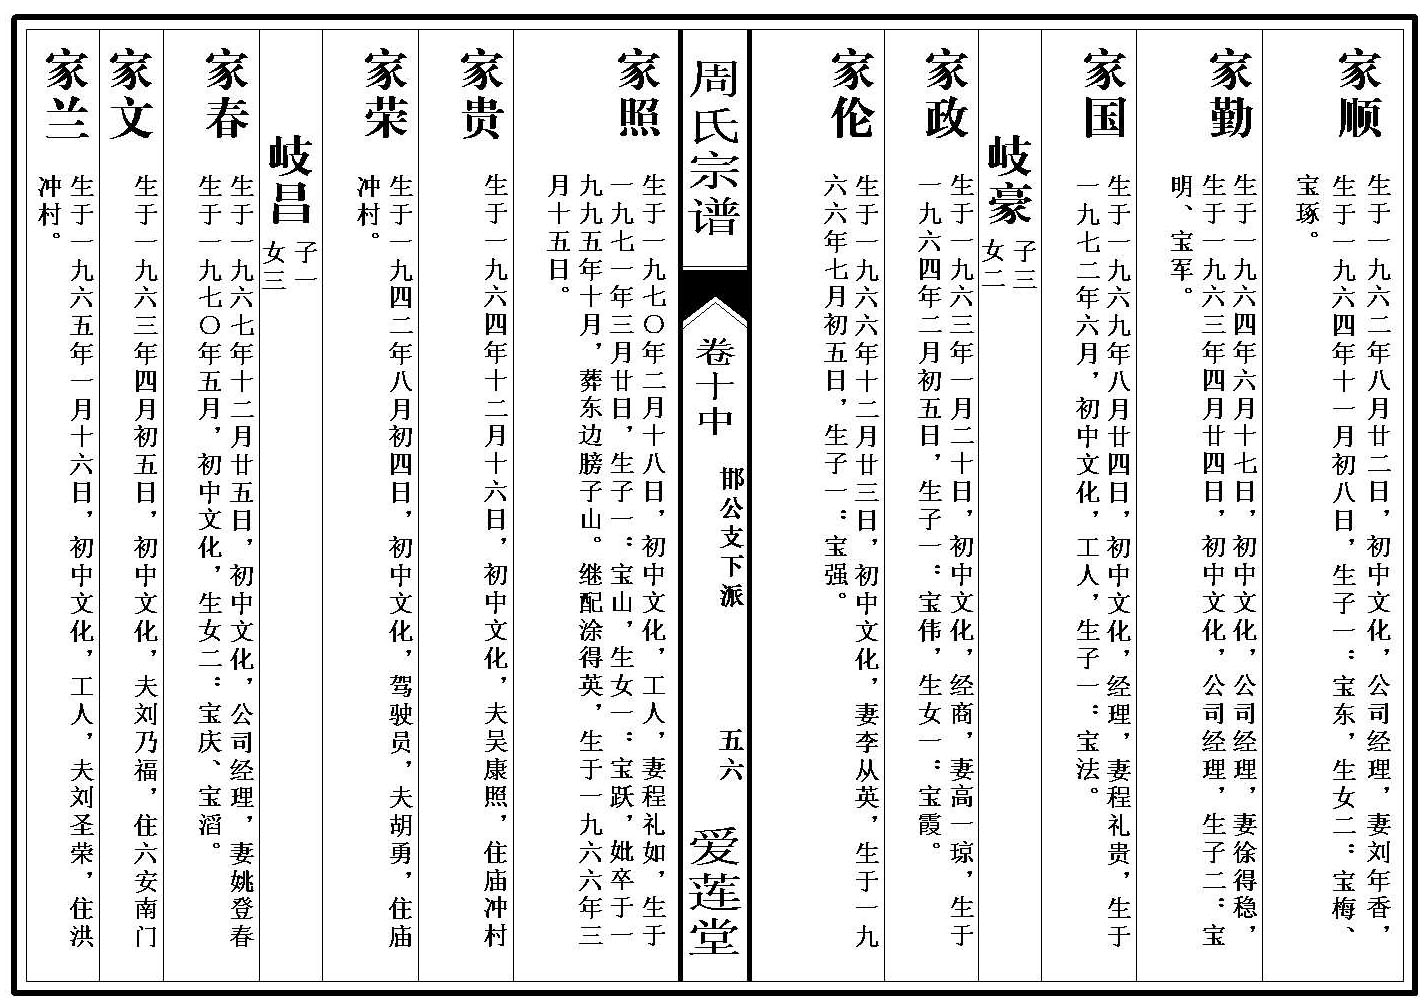 家顺
生于一九六二年八月廿二日，初中文化，公司经理，妻刘年香，
生于一九六四年十一月初八日，生子一：宝东，生女二：宝梅、
宝琢。
家勤
生于一九六四年六月十七日，初中文化，公司经理，妻徐得稳，
生于一九六三年四月廿四日，初中文化，公司经理，生子二：宝
明、宝军。
家国
生于一九六九年八月廿四日，初中文化，经理，妻程礼贵，生于
一九七二年六月，初中文化，工人，生子一：宝法。
岐豪
子三
女二
家政
生于一九六三年一月二十日，初中文化，经商，妻高一琼，生于
一九六四年二月初五日，生子一：宝伟，生女一：宝霞。
家伦
生于一九六六年十二月廿三日，初中文化，妻李从英，生于一九
六六年七月初五日，生子一：宝强。
周氏宗谱
卷十中
邯公支下派
五六
爱莲堂
家照
生于一九七〇年二月十八日，初中文化，工人，妻程礼如，生于
一九七一年三月廿日，生子一：宝山，生女一：宝跃，妣卒于一
九九五年十月，葬东边膀子山。继配涂得英，生于一九六六年三
月十五日。
家贵
生于一九六四年十二月十六日，初中文化，夫吴康照，住庙冲村
家荣
生于一九四二年八月初四日，初中文化，驾驶员，夫胡勇，住庙
冲村。
岐昌
子一
女三
家春
生于一九六七年十二月廿五日，初中文化，公司经理，妻姚登春
生于一九七〇年五月，初中文化，生女二：宝庆、宝滔。
家文
生于一九六三年四月初五日，初中文化，夫刘乃福，住六安南门
家兰
生于一九六五年一月十六日，初中文化，工人，夫刘圣荣，住洪
冲村。